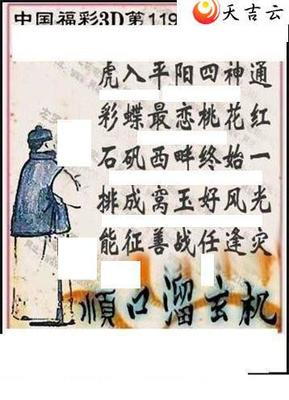 天吉云
中国福彩3D第119
虎入平阳四神通
彩蝶最恋桃花红
石矶西畔终始一
排成窝玉好风光
能征善战任逢灾
顺口溜玄机